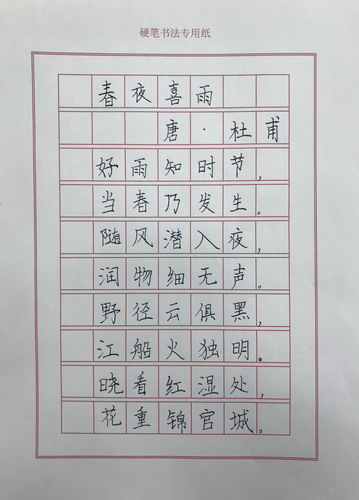 硬笔书法专用纸
春夜喜雨
唐·杜甫
好雨知时节，
当春乃发生。
随风潜入夜，
润物细无声。
野径云俱黑，
江船火独明。
晓看红湿处，
花重锦官城。